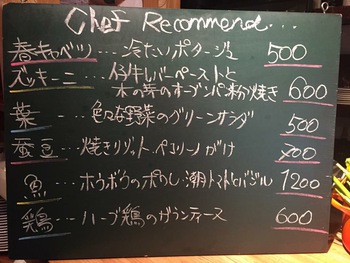 Chef Recommend...
春キャベツ…冷たいポタージュ 500
ズッキーニ…仔牛レバーペーストと
木の芽のオーブンパン粉焼き 600
葉…色々な野菜のグリーンサラダ 500
蚕豆…焼きリゾット.ペコリーノがけ 700
魚…ホウボウのポワレ.潮トマトとバジル 1200
鶏…ハーブ鶏のガランティーヌ 600